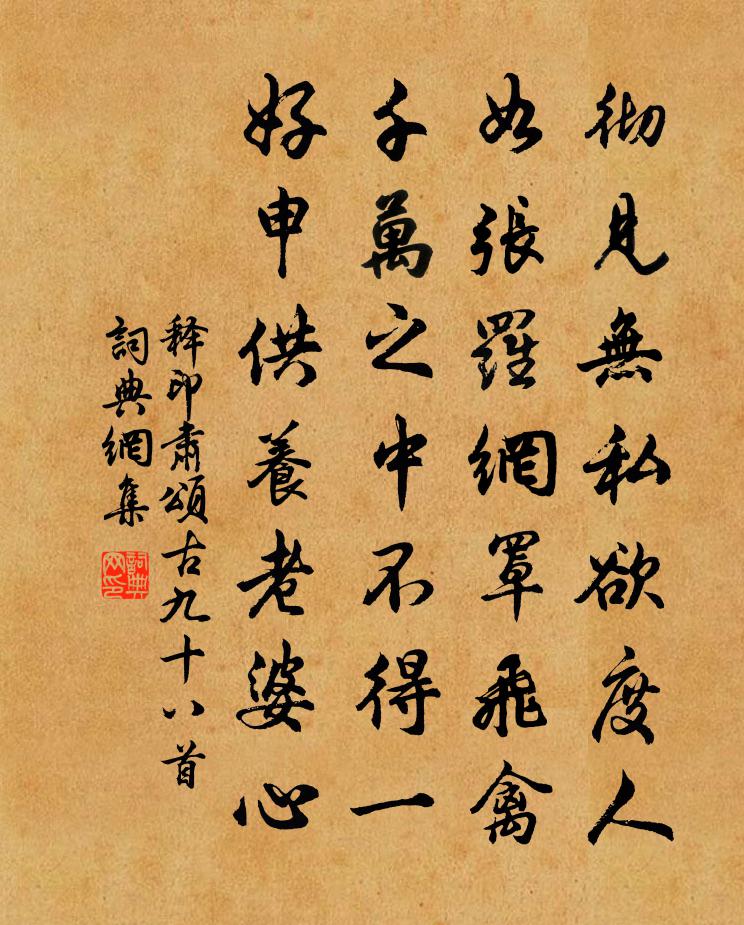 彻見無私欲度人
如張羅網罩飛禽
千萬之中不得一
好申供養老婆心
释印肃頌古九十八首
詞典網集
詞典网印